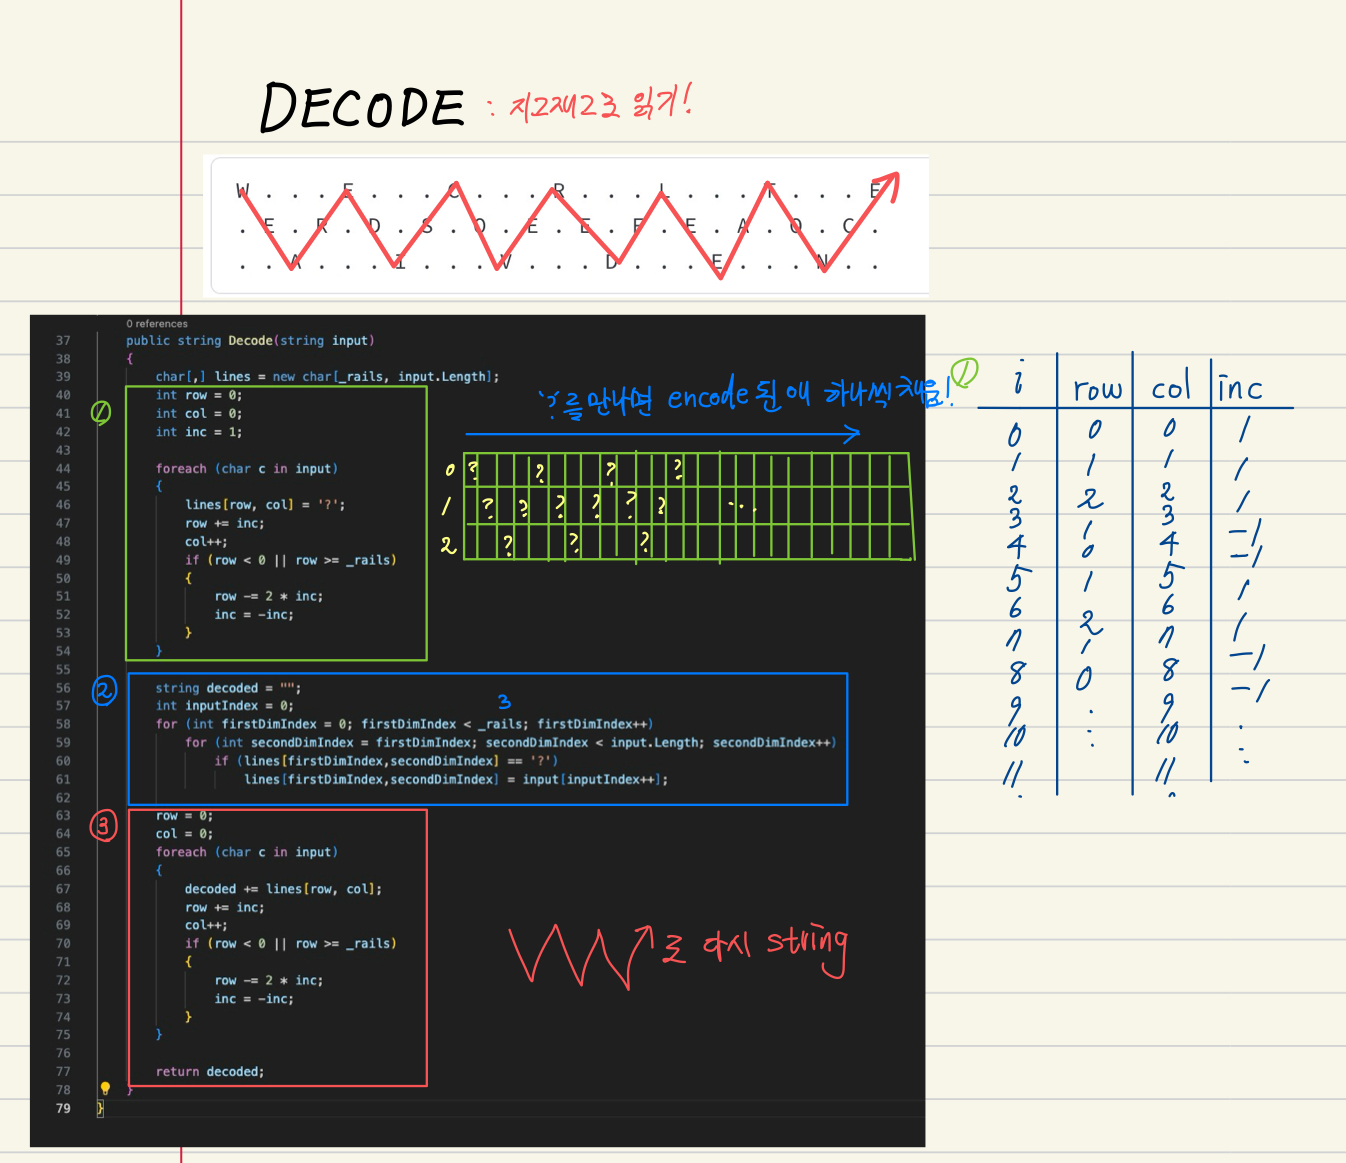 DECODE : 지그재그로 읽기!
W . . . E . . . C . . . R . . . L . . . T . . . E
. E . R . D . S . O . E . E . F . E . A . O . C .
. . A . . . I . . . V . . . D . . . E . . . N . .
0 references
37 public string Decode(string input)
38 {
39 char[,] lines = new char[_rails, input.Length];
40 int row = 0;
① 41 int col = 0;
42 int inc = 1;
43
44 foreach (char c in input)
45 {
46 lines[row, col] = '?';
47 row += inc;
48 col++;
49 if (row < 0 || row >= _rails)
50 {
51 row -= 2 * inc;
52 inc = -inc;
53 }
54 }
55
② 56 string decoded = "";
57 int inputIndex = 0;
3
58 for (int firstDimIndex = 0; firstDimIndex < _rails; firstDimIndex++)
59 for (int secondDimIndex = firstDimIndex; secondDimIndex < input.Length; secondDimIndex++)
60 if (lines[firstDimIndex,secondDimIndex] == '?')
61 lines[firstDimIndex,secondDimIndex] = input[inputIndex++];
62
63 row = 0;
③ 64 col = 0;
65 foreach (char c in input)
66 {
67 decoded += lines[row, col];
68 row += inc;
69 col++;
70 if (row < 0 || row >= _rails)
71 {
72 row -= 2 * inc;
73 inc = -inc;
74 }
75 }
76
77 return decoded;
78 }
79 }
'?'를 만나면 encode 된 애 하나씩 채움!
0 ? ? ? ?
1 ? ? ? ? ? ? ...
2 ? ? ?
로 다시 string
① i row col inc
0 0 0 1
1 1 1 1
2 2 2 1
3 1 3 -1
4 0 4 -1
5 1 5 1
6 2 6 1
7 1 7 -1
8 0 8 -1
9 : 9 :
10 : 10 :
11 11